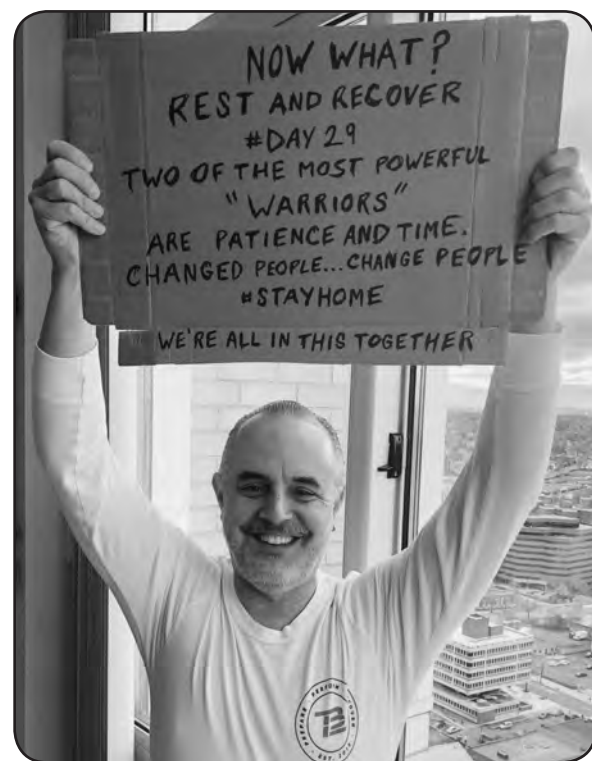 NOW WHAT?
REST AND RECOVER
#DAY 29
TWO OF THE MOST POWERFUL
"WARRIORS"
ARE PATIENCE AND TIME.
CHANGED PEOPLE...CHANGE PEOPLE
#STAYHOME
WE'RE ALL IN THIS TOGETHER
PREPARE PERFORM
EST.